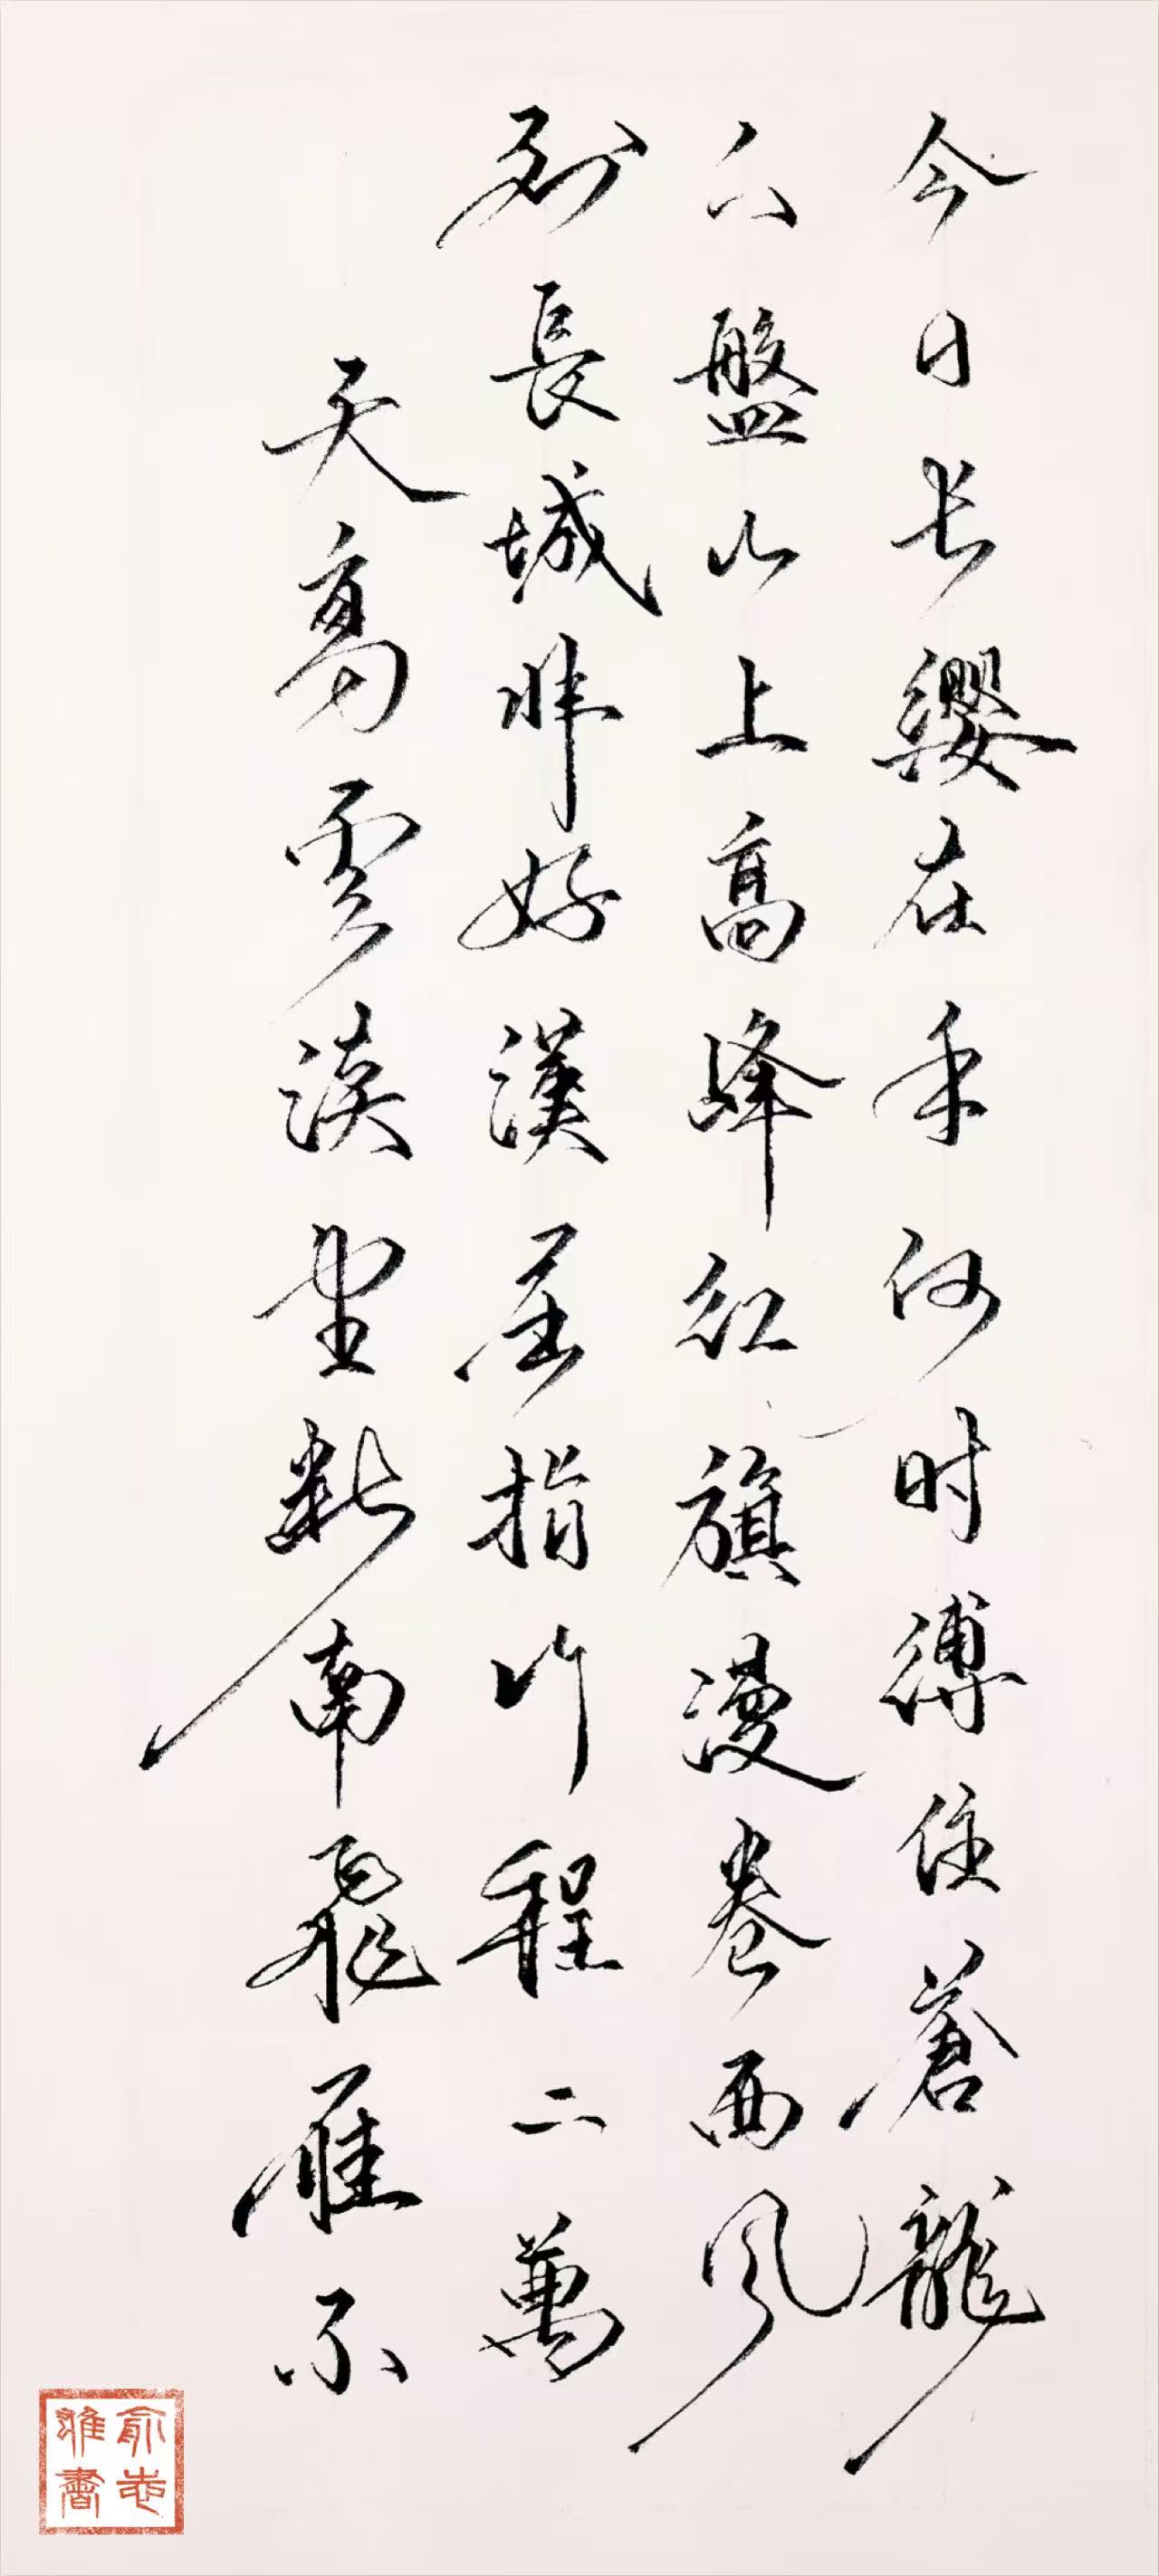 天高雲淡望斷南飛雁不
到長城非好漢屈指行程二萬
六盤山上高峰紅旗漫卷西风
今日长纓在手何时縛住蒼龍
俞志
書